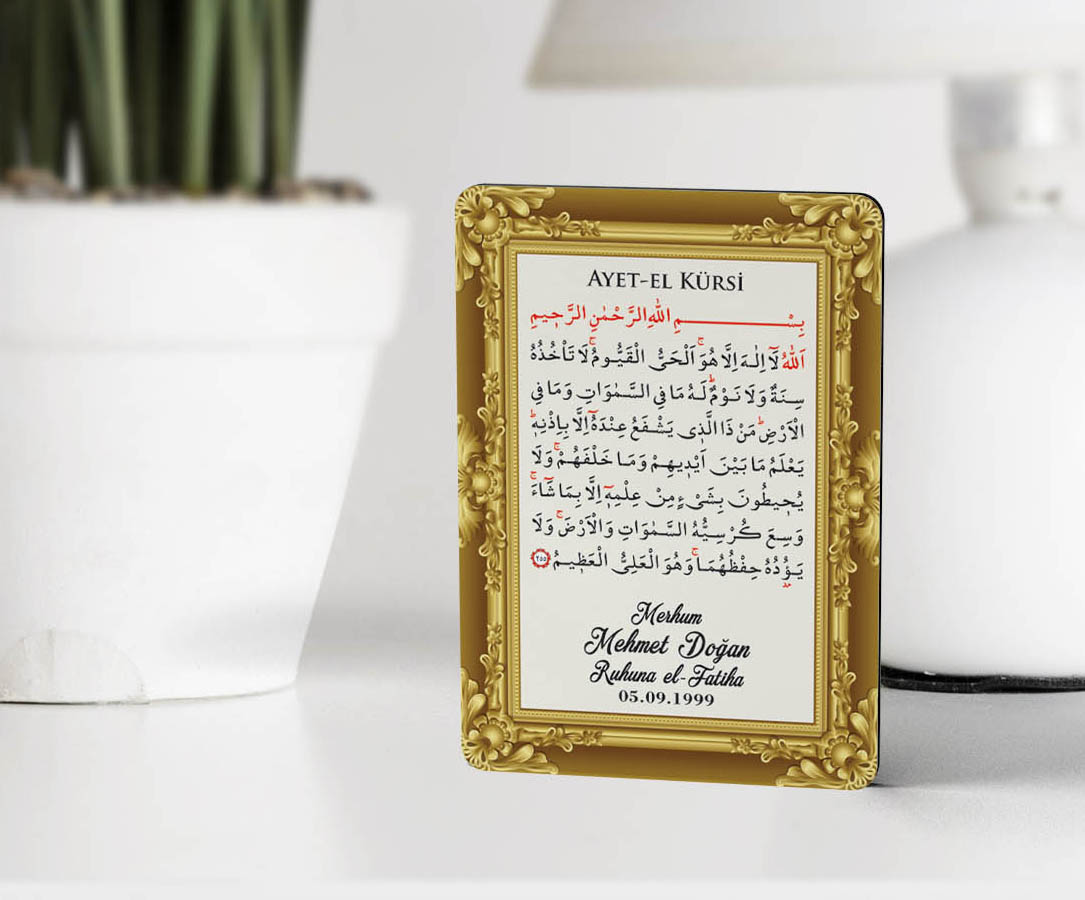 AYET-EL KÜRSİ
بِسْمِ اللهِ الرَّحْمٰنِ الرَّحٖيمِ
اَللهُ لَٓا اِلٰهَ اِلَّا هُوَۚ اَلْحَيُّ الْقَيُّومُۚ لَا تَأْخُذُهُ
سِنَةٌ وَلَا نَوْمٌؕ لَهُ مَا فِي السَّمٰوَاتِ وَمَا فِي
الْاَرْضِؕ مَنْ ذَا الَّذٖي يَشْفَعُ عِنْدَهُٓ اِلَّا بِاِذْنِهٖؕ
يَعْلَمُ مَا بَيْنَ اَيْدٖيهِمْ وَمَا خَلْفَهُمْۚ وَلَا
يُحٖيطُونَ بِشَيْءٍ مِنْ عِلْمِهٖٓ اِلَّا بِمَا شَٓاءَۚ
وَسِعَ كُرْسِيُّهُ السَّمٰوَاتِ وَالْاَرْضَۚ وَلَا
يَؤُ۫دُهُ حِفْظُهُمَاۚ وَهُوَ الْعَلِيُّ الْعَظٖيمُ ٢٥٥
Merhum
Mehmet Doğan
Ruhuna el-Fatiha
05.09.1999